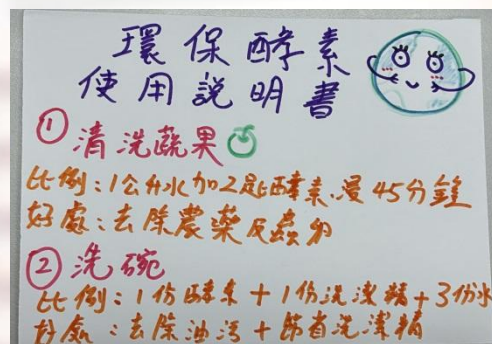 環保酵素
使用說明書
①清洗蔬果
比例:1公升水加2匙酵素.浸45分鐘
好處:去除農藥及蟲卵
②洗碗
比例:1份酵素+1份洗潔精+3份水
好處:去除油污+節省洗潔精